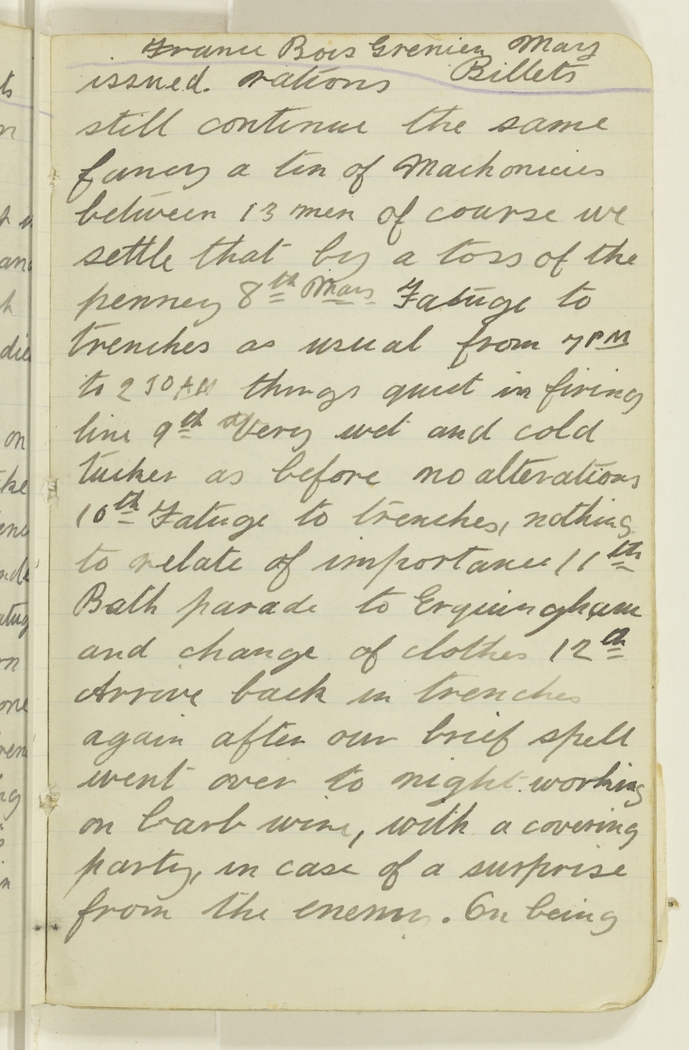 France Bois Grenier May
issued. rations Billets
still continue the same
fancy a tin of Machonicies
between 13 men of course we
settle that by a toss of the
penney 8th May Fatuge to
trenches as usual from 7PM
to 230AM things quiet in firing
line 9th Very wet and cold
tucker as before no alterations
10th Fatuge to trenches, nothing
to relate of importance 11th
Bath parade to Erquingham
and change of clothes 12th
Arrive back in trenches
again after our brief spell
went over to night working
on barb wire, with a covering
party, in case of a surprise
from the enemy. On being